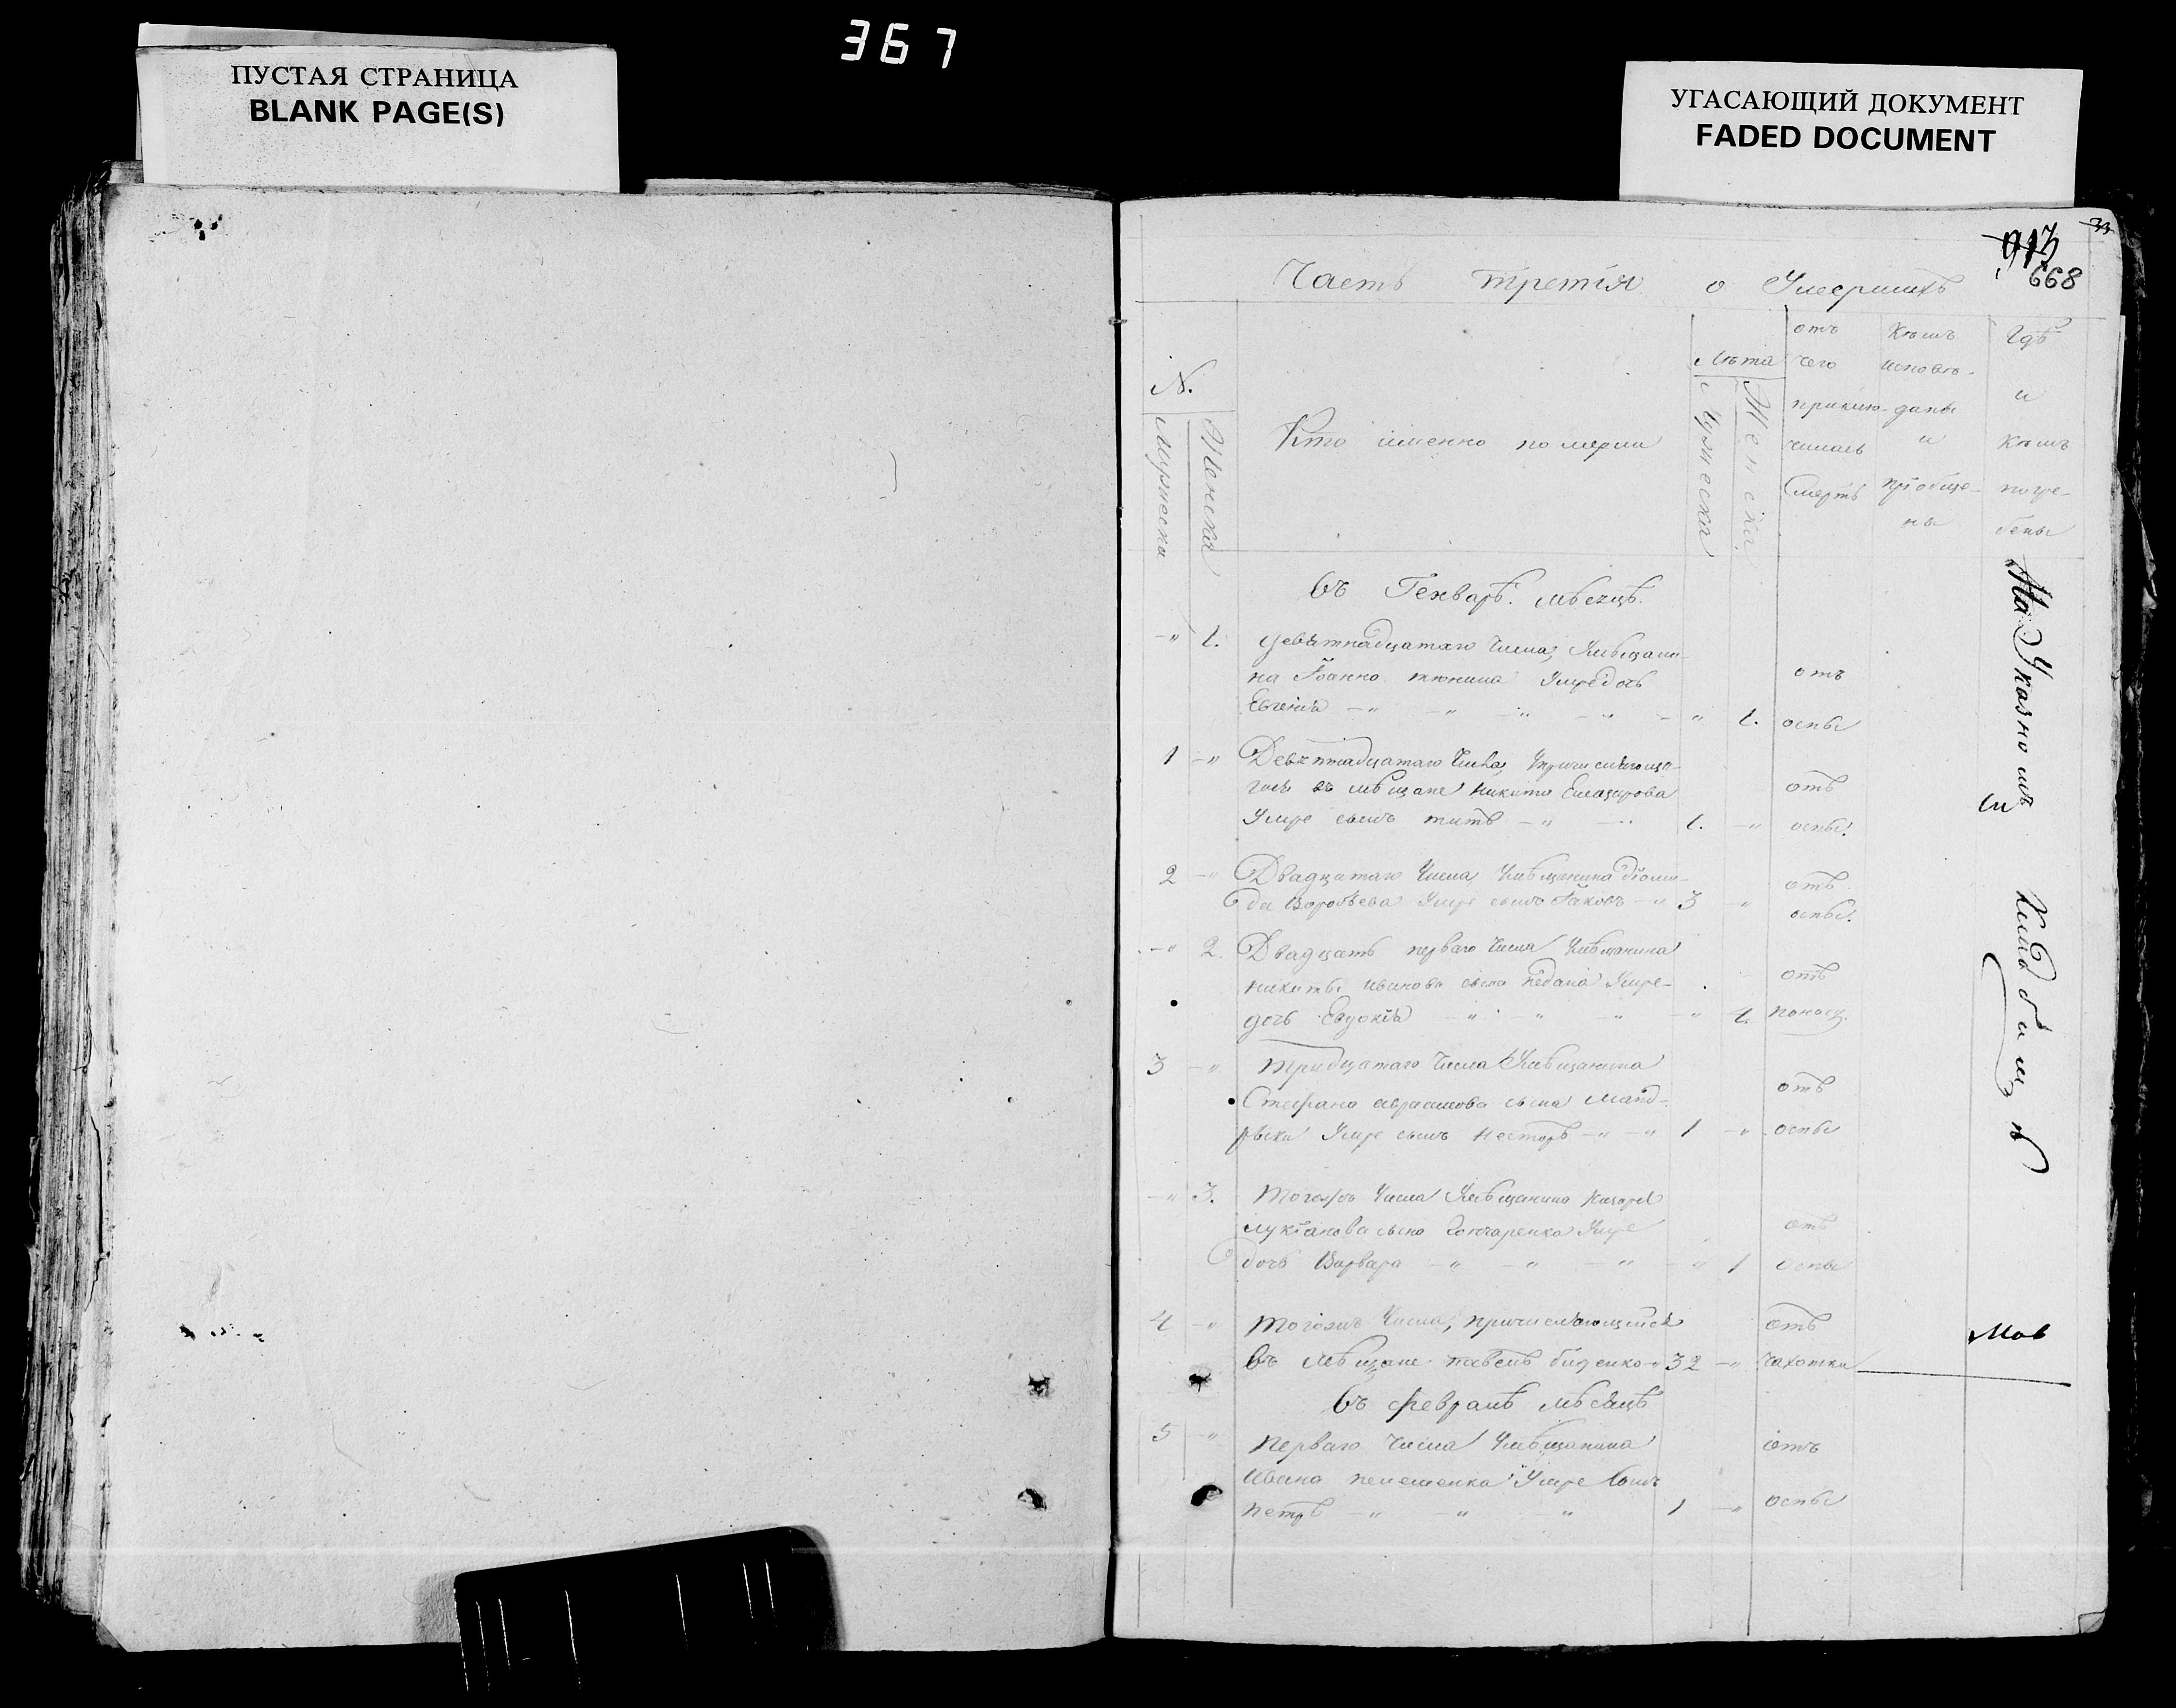 367
ПУСТАЯ СТРАНИЦА
BLANK PAGE(S)
УГАСАЮЩИЙ ДОКУМЕНТ
FADED DOCUMENT
33
668
Часть третія о Умершихъ
N.
Мужеска
Женска
Кто именно померли
Лѣта
Мужеска
Женска
отъ чего приклю-
чилась
Смерть
Кѣмъ исповѣ-
даны
и
пріобще-
ны
Гдѣ
и
Кѣмъ
погре-
бены
Въ Генварѣ мѣсяцѣ.
-" 1. Девятнадцатаго Числа, Умѣщани-
на Іоанна Умре дочь
Евгенія -" -" -" -" -" 1. отъ оспы
1 -" Девятнадцатаго Числа, Упричисляюща-
гося въ мѣщане Никиты
Умре сынъ титъ -" -" 1. -" отъ оспы.
2 -" Двадцатаго Числа, Умѣщанина Діоми-
да Воробьева Умре сынъ Іаковъ -" 3 -" отъ оспы.
-" 2. Двадцать перваго Числа Умѣщанина
Никиты Иванова сына Умре
дочь Евдокія -" -" -" -" 1. отъ поносу.
3 -" Тридцатаго Числа Умѣщанина
Стефана Авраамова сына Манд-
рыки Умре сынъ Несторъ -" -" 1 -" отъ оспы
-" 3. Тогожъ Числа Умѣщанина Назара
Лукіанова сына Гончаренка Умре
дочь Варвара -" -" -" -" 1 отъ оспы
4 -" Тогожъ Числа, причисляющийся
въ мѣщане павелъ -" 32 -" отъ чахотки
Въ февралѣ мѣсяцѣ
5 -" перваго Числа Умѣщанина
Ивана Умре сынъ
петръ -" -" -" 1 -" отъ оспы
На Указномъ
Кладбищѣ